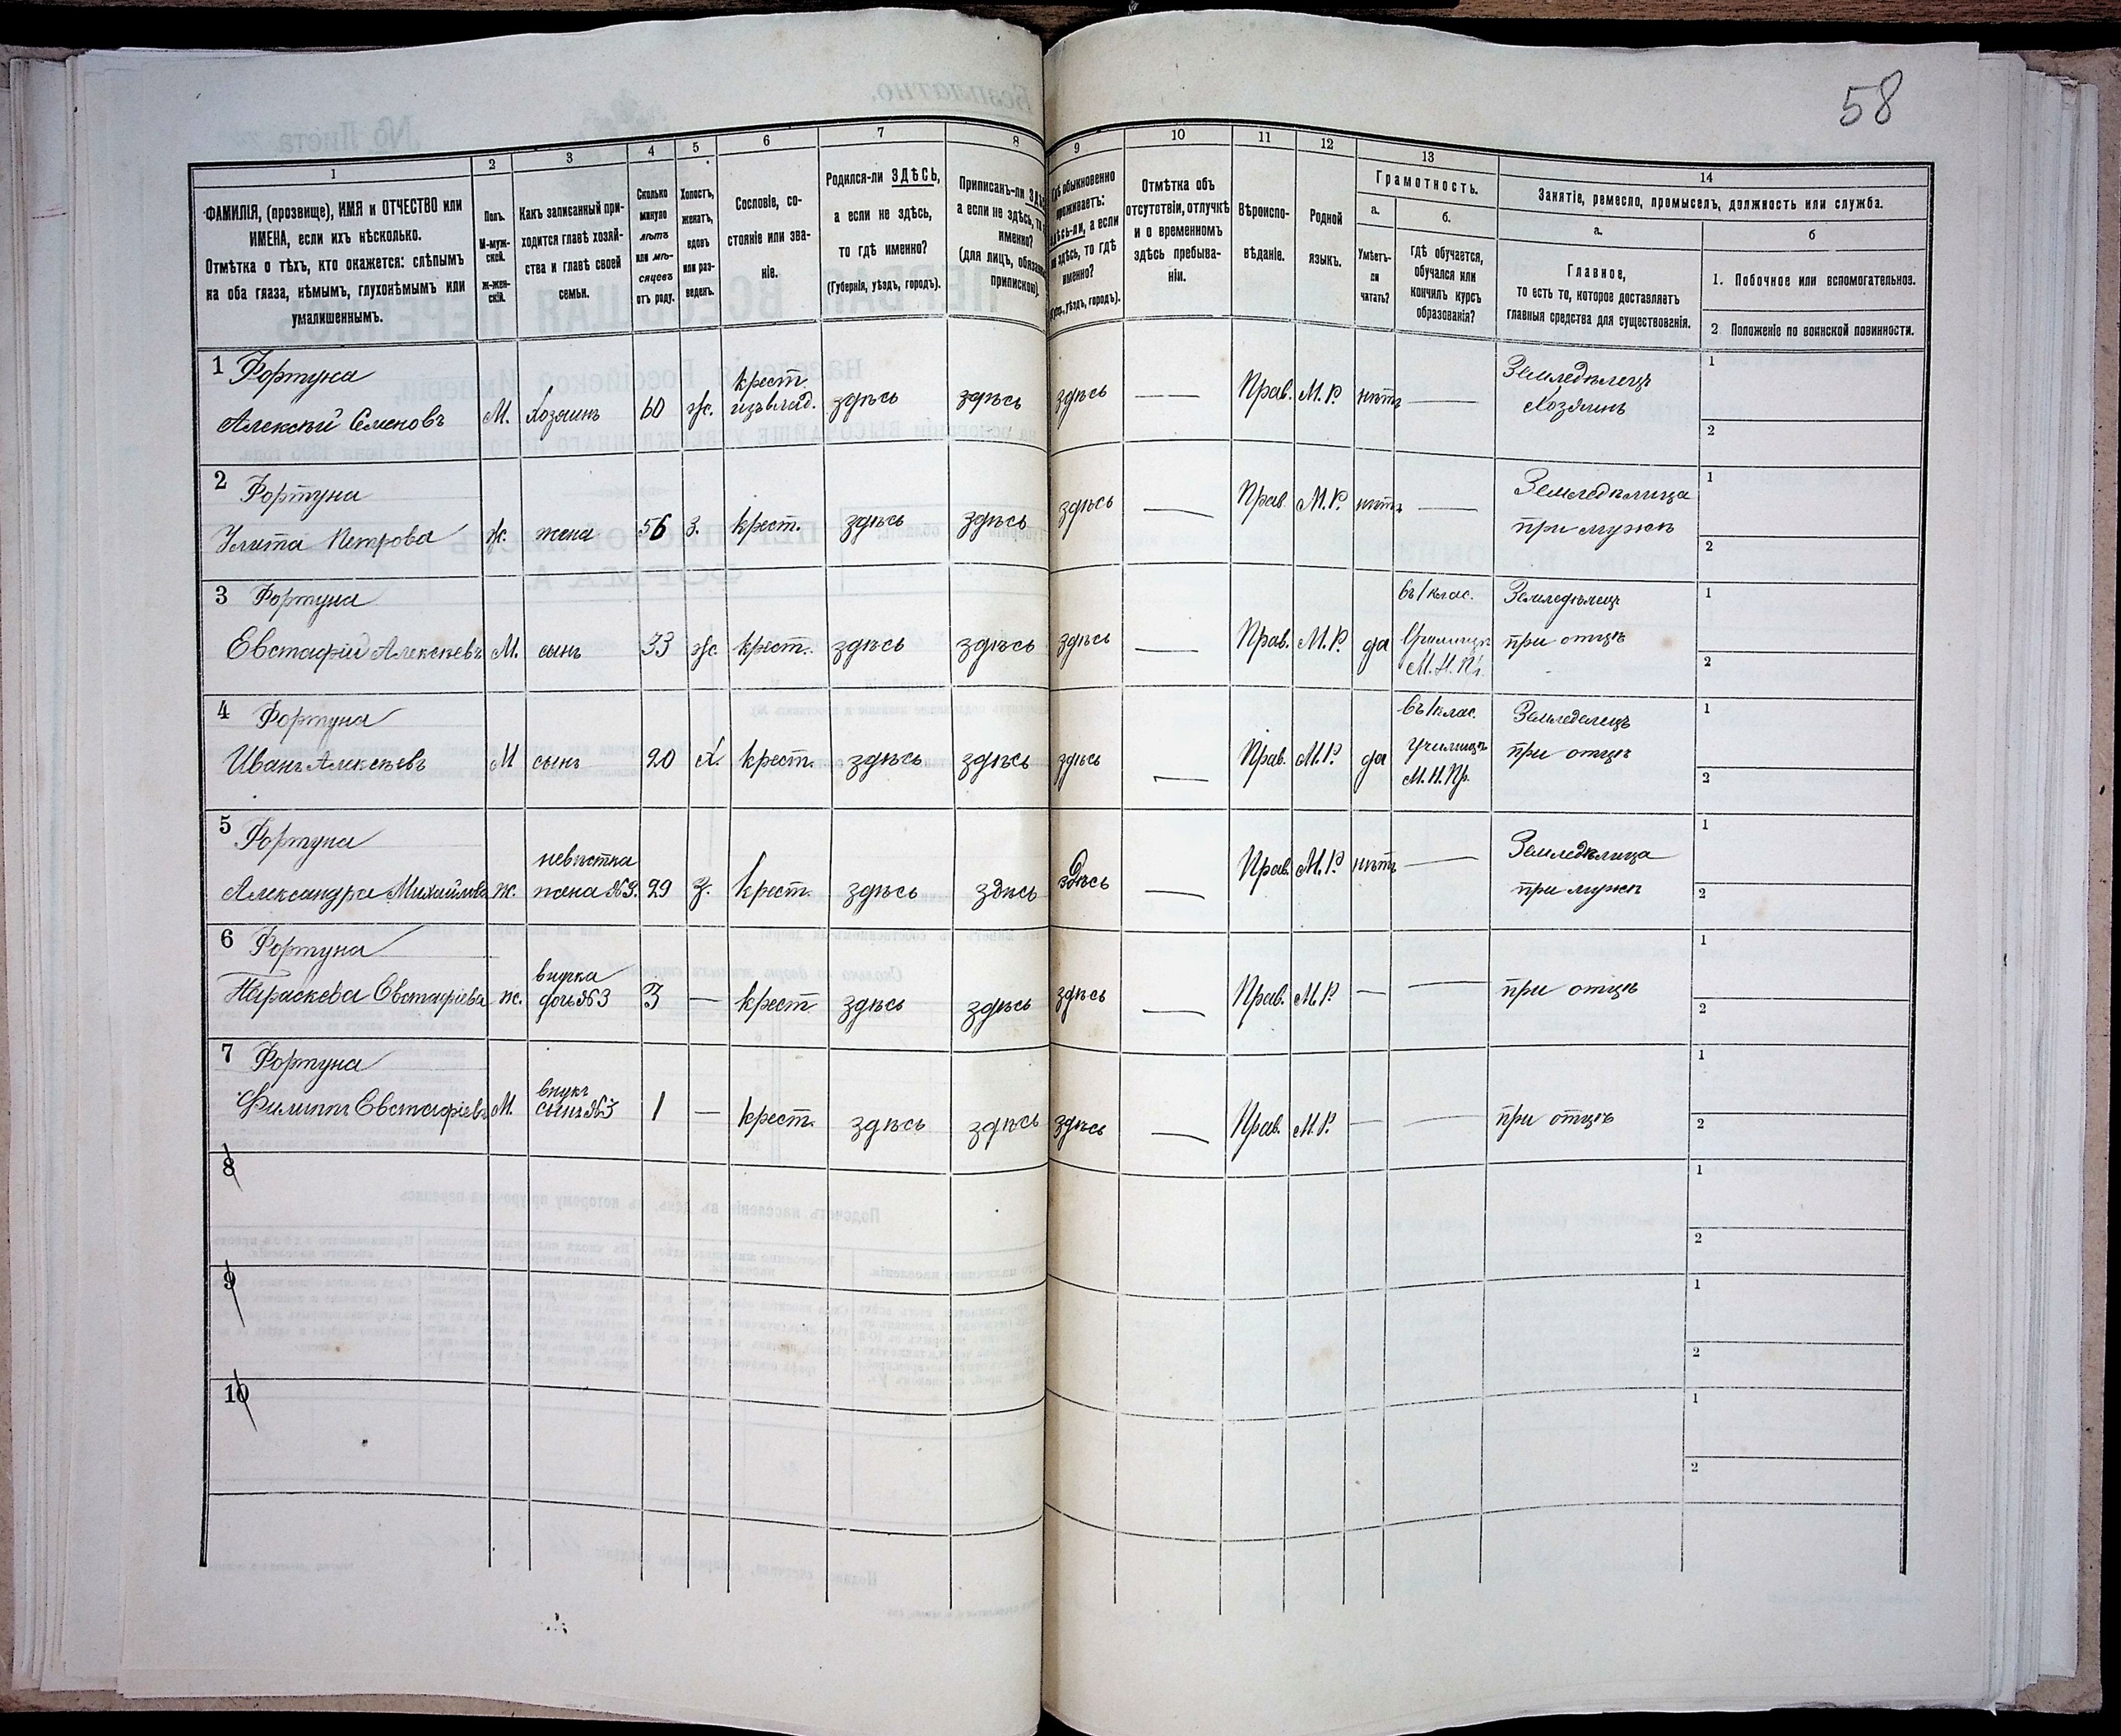 58
1
2
3
4
5
6
7
8
9
10
11
12
13
14
ФАМИЛІЯ, (прозвище), ИМЯ и ОТЧЕСТВО или
ИМЕНА, если ихъ нѣсколько.
Отмѣтка о тѣхъ, кто окажется: слѣпымъ
на оба глаза, нѣмымъ, глухонѣмымъ или
умалишеннымъ.
Полъ.
М-муж-
ской.
Ж-жен-
скій.
Какъ записанный при-
ходится главѣ хозяй-
ства и главѣ своей
семьи.
Сколько
минуло
лѣтъ
или мѣ-
сяцевъ
отъ роду.
Холостъ,
женатъ,
вдовъ
или раз-
веденъ.
Сословіе, со-
стояніе или зва-
ніе.
Родился-ли ЗДѢСЬ,
а если не здѣсь,
то гдѣ именно?
(Губернія, уѣздъ, городъ).
Приписанъ-ли
а если не здѣсь,
именно?
(для лицъ,
припискою).
обыкновенно
проживаетъ:
а если
здѣсь, то гдѣ
именно?
уѣздъ, городъ).
Отмѣтка объ
отсутствіи, отлучкѣ
и о временномъ
здѣсь пребыва-
ніи.
Вѣроиспо-
вѣданіе.
Родной
языкъ.
Грамотность.
а.
Умѣетъ-
ли
читать?
б.
гдѣ обучается,
обучался или
кончилъ курсъ
образованія?
Занятіе, ремесло, промыселъ, должность или служба.
а.
Главное,
то есть то, которое доставляетъ
главныя средства для существованія.
б
1. Побочное или вспомогательное.
2 Положеніе по воинской повинности.
1 Фортуна
Алексѣй Семеновъ М. Хозяинъ 60 ж. крест. изъ влад. здѣсь здѣсь здѣсь — Прав. М.Р. нѣтъ — Земледѣлецъ
Хозяинъ
1
2
2 Фортуна
Улита Петрова ж. жена 56 З. крест. здѣсь здѣсь здѣсь — Прав. М.Р. нѣтъ — Земледѣлица
при мужѣ
1
2
3 Фортуна
Евстафій Алексѣевъ М. сынъ 33 ж. крест. здѣсь здѣсь здѣсь — Прав. М.Р. да въ 1 клас.
Училищѣ
М.Н.Пр.
Земледѣлецъ
при отцѣ
1
2
4 Фортуна
Иванъ Алексѣевъ М сынъ 20 Х. крест. здѣсь здѣсь здѣсь — Прав. М.Р. да въ 1 клас.
училищѣ
М.Н.Пр.
Земледелецъ
при отцѣ
1
2
5 Фортуна
невѣстка
Александра Михайлова ж. жена №3. 29 З. крест. здѣсь здѣсь здѣсь — Прав. М.Р. нѣтъ — Земледѣлица
при мужѣ
1
2
6 Фортуна
внучка
Параскева Евстафіева ж. дочь №3 3 — крест. здѣсь здѣсь здѣсь — Прав. М.Р. — — при отцѣ
1
2
7 Фортуна
внукъ
Филиппъ Евстафіевъ М. сынъ №3 1 — крест. здѣсь здѣсь здѣсь — Прав. М.Р. — — при отцѣ
1
2
8
1
2
9
1
2
10
1
2